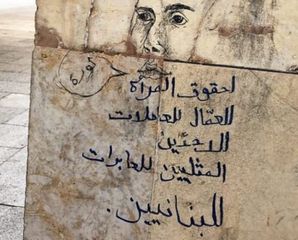 ثورة
لحقوق المرأة
للعمّال للعاملات
اللاجئين
المثليين للعابرات
للبنانيين.